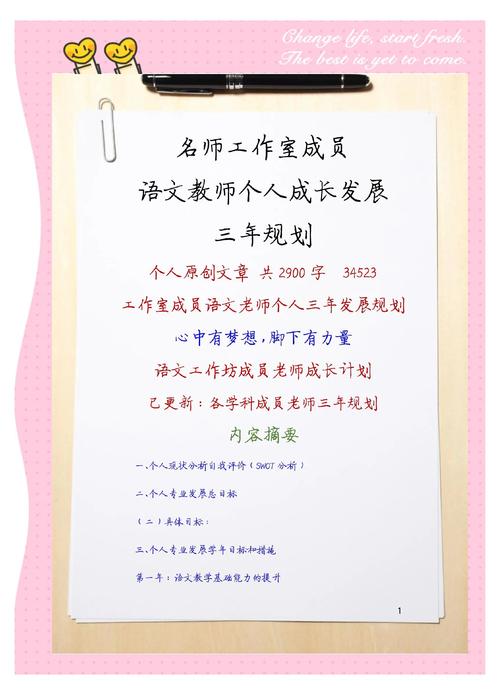 Change life, start fresh.
The best is yet to come.
名师工作室成员
语文教师个人成长发展
三年规划
个人原创文章 共2900字 34523
工作室成员语文老师个人三年发展规划
心中有梦想,脚下有力量
语文工作坊成员老师成长计划
已更新：各学科成员老师三年规划
内容摘要
一、个人现状分析自我评价（SWOT 分析）
二、个人专业发展总目标
（二）具体目标：
三、个人专业发展学年目标和措施
第一年：语文教学基础能力的提升
1